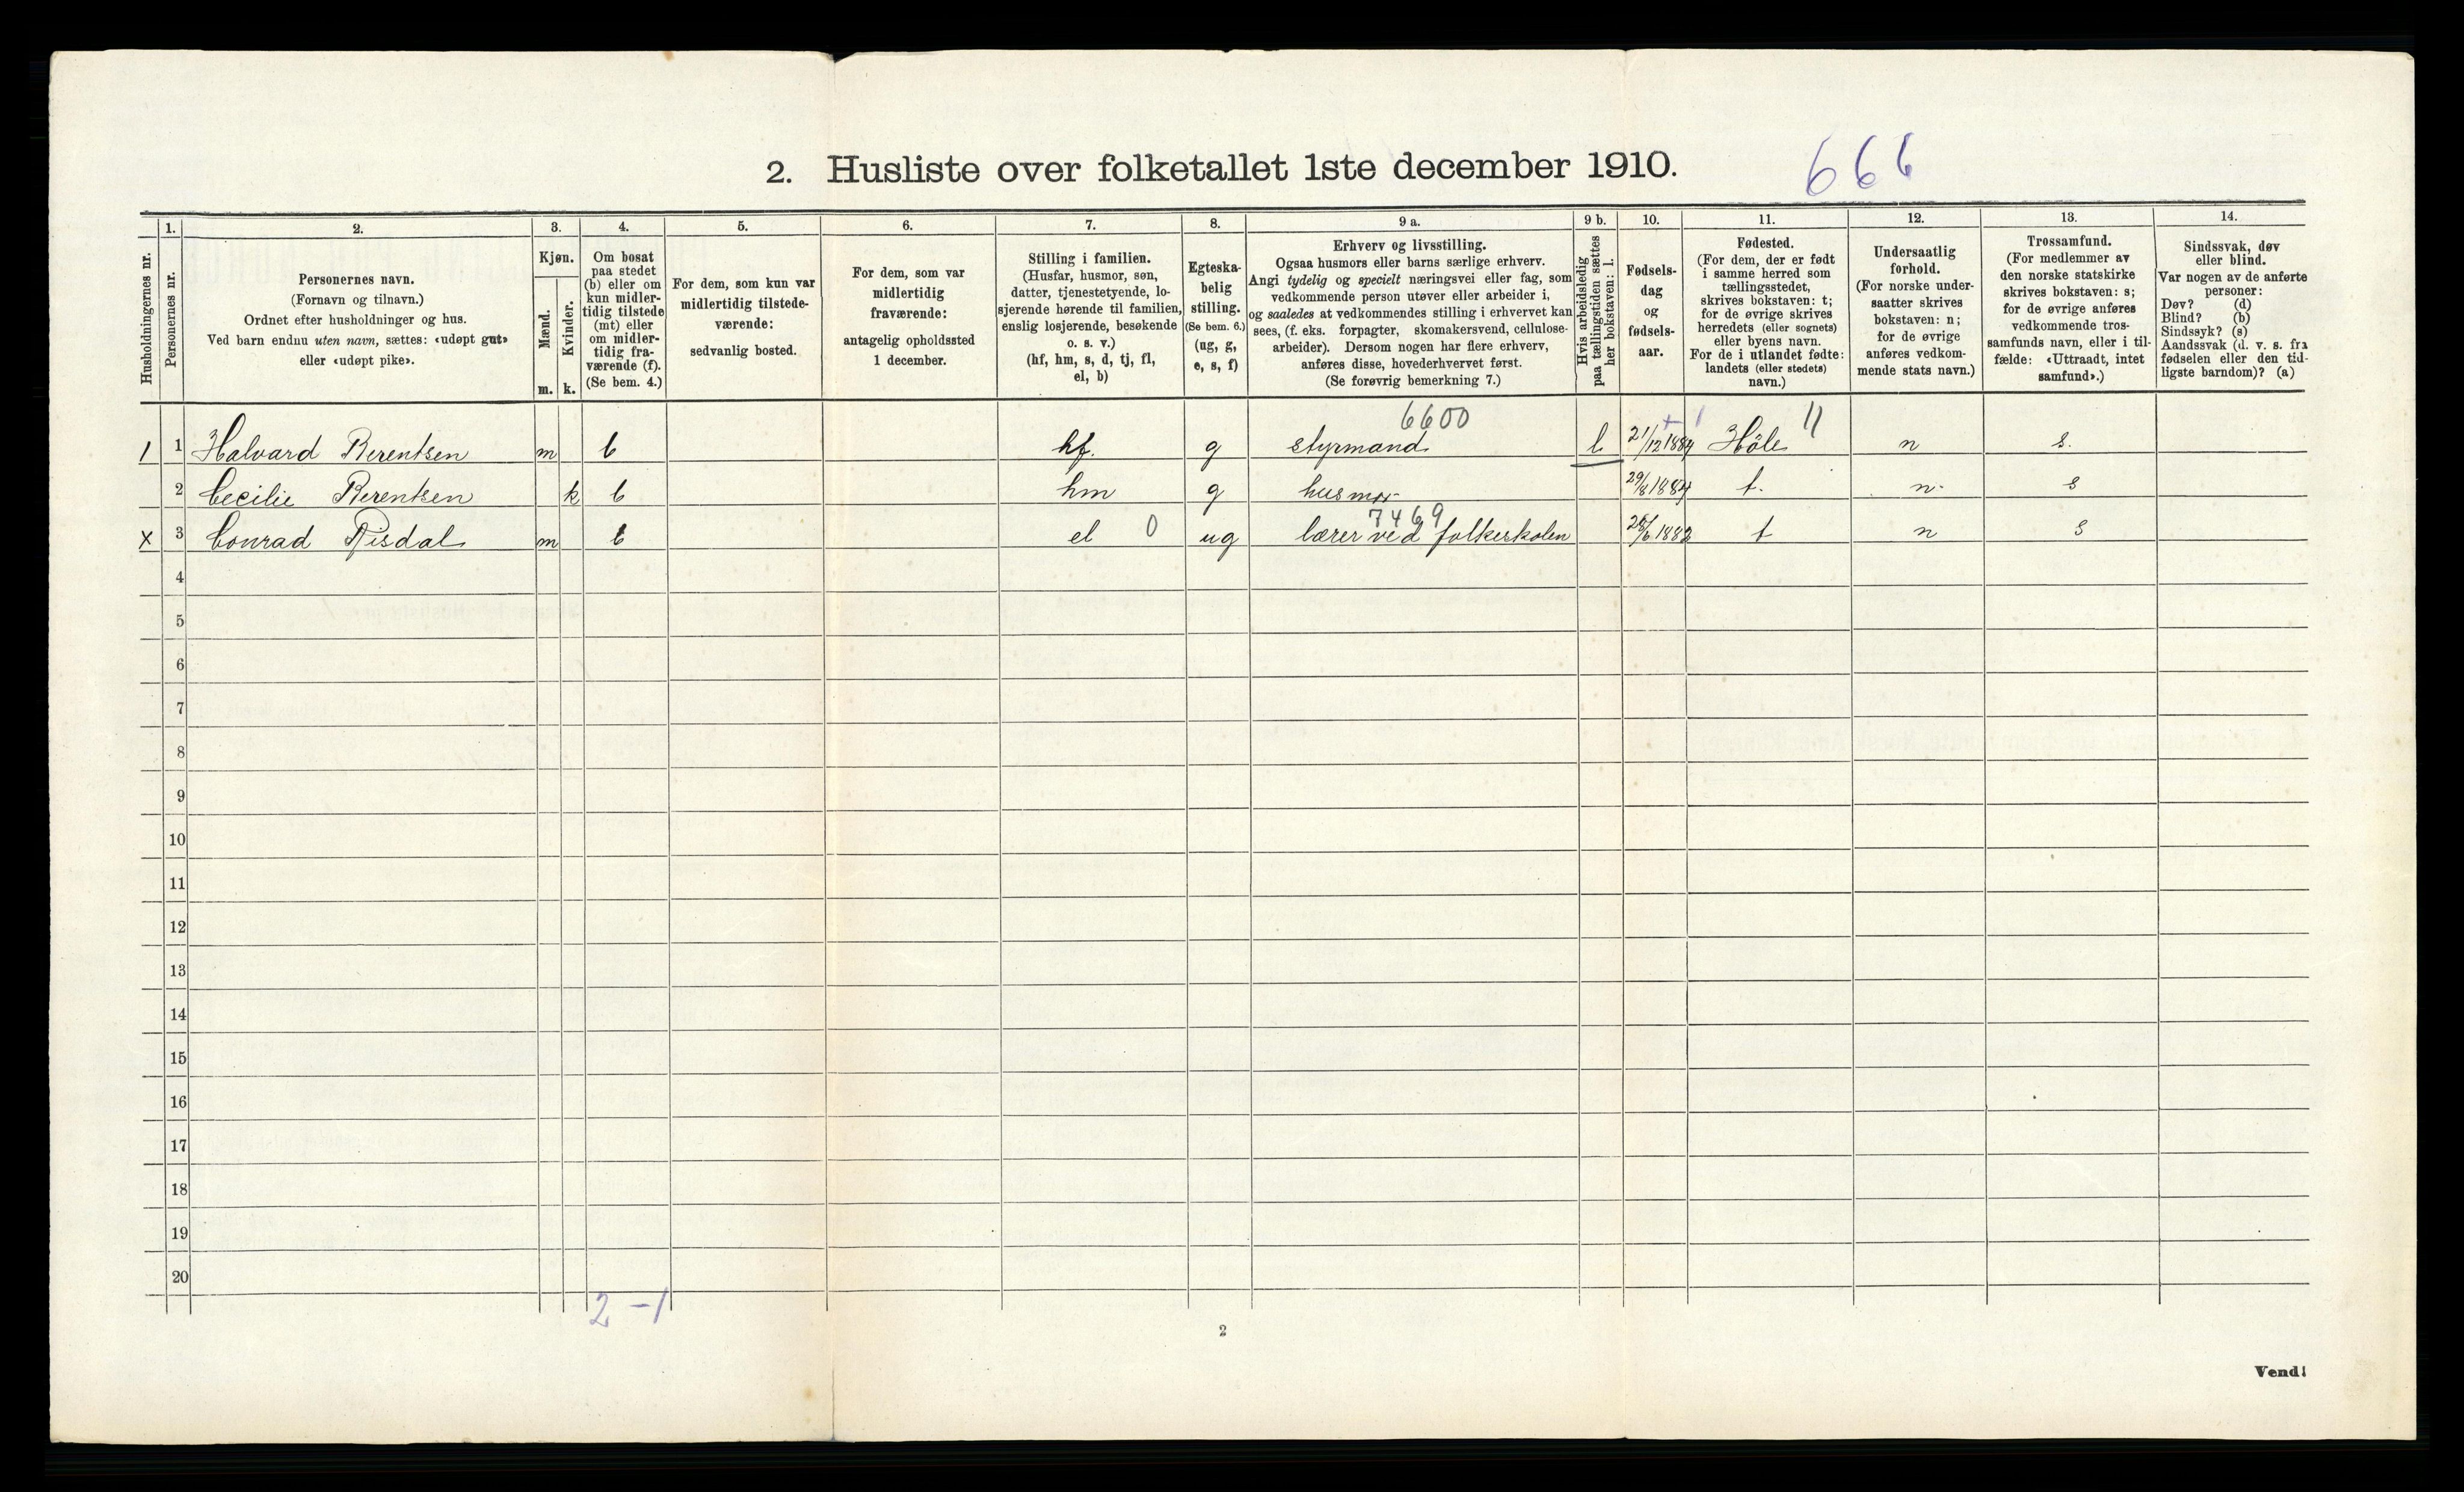 2. Husliste over folketallet 1ste december 1910.
666
Husholdningernes nr.
1.
Personernes nr.
2.
Personernes navn.
(Fornavn og tilnavn.)
Ordnet efter husholdninger og hus.
Ved barn endnu uten navn, sættes: «udøpt gut»
eller «udøpt pike».
3.
Kjøn.
Mænd.
m.
Kvinder.
k.
4.
Om bosat
paa stedet
(b) eller om
kun midler-
tidig tilstede
(mt) eller
om midler-
tidig fra-
værende (f).
(Se bem. 4.)
5.
For dem, som kun var
midlertidig tilstede-
værende:
sedvanlig bosted.
6.
For dem, som var
midlertidig
fraværende:
antagelig opholdssted
1 december.
7.
Stilling i familien.
(Husfar, husmor, søn,
datter, tjenestetyende, lo-
sjerende hørende til familien,
enslig losjerende, besøkende
o. s. v.)
(hf, hm, s, d, tj, fl,
el, b)
8.
Egteska-
belig
stilling.
(Se bem. 6.)
(ug, g,
e, s, f)
9 a.
Erhverv og livsstilling.
Ogsaa husmors eller barns særlige erhverv.
Angi tydelig og specielt næringsvei eller fag, som
vedkommende person utøver eller arbeider i,
og saaledes at vedkommendes stilling i erhvervet kan
sees, (f. eks. forpagter, skomakersvend, cellulose-
arbeider). Dersom nogen har flere erhverv,
anføres disse, hovederhvervet først.
(Se forøvrig bemerkning 7.)
9 b.
Hvis arbeidsledig
paa tællingstiden sættes
her bokstaven: l.
10.
Fødsels-
dag
og
fødsels-
aar.
11.
Fødested.
(For dem, der er født
i samme herred som
tællingsstedet,
skrives bokstaven: t;
for de øvrige skrives
herredets (eller sognets)
eller byens navn.
For de i utlandet fødte:
landets (eller stedets)
navn.)
12.
Undersaatlig
forhold.
(For norske under-
saatter skrives
bokstaven: n;
for de øvrige
anføres vedkom-
mende stats navn.)
13.
Trossamfund.
(For medlemmer av
den norske statskirke
skrives bokstaven: s;
for de øvrige anføres
vedkommende tros-
samfunds navn, eller i til-
fælde: «Uttraadt, intet
samfund».)
14.
Sindssvak, døv
eller blind.
Var nogen av de anførte
personer:
Døv? (d)
Blind? (b)
Sindssyk? (s)
Aandssvak (d. v. s. fra
fødselen eller den tid-
ligste barndom)? (a)
6600 11
1 1 Halvard Berentsen m b hf. g styrmand l 21/12 1884 Höle n s.
2 Cecilie Berentsen k b hm g husmor 29/8 1884 t. n. s
7469
x 3 Conrad Risdal m b el 0 ug lærer ved folkeskolen 1882 t n s
4
5
6
7
8
9
10
11
12
13
14
15
16
17
18
19
20
2 – 1
2
Vend!